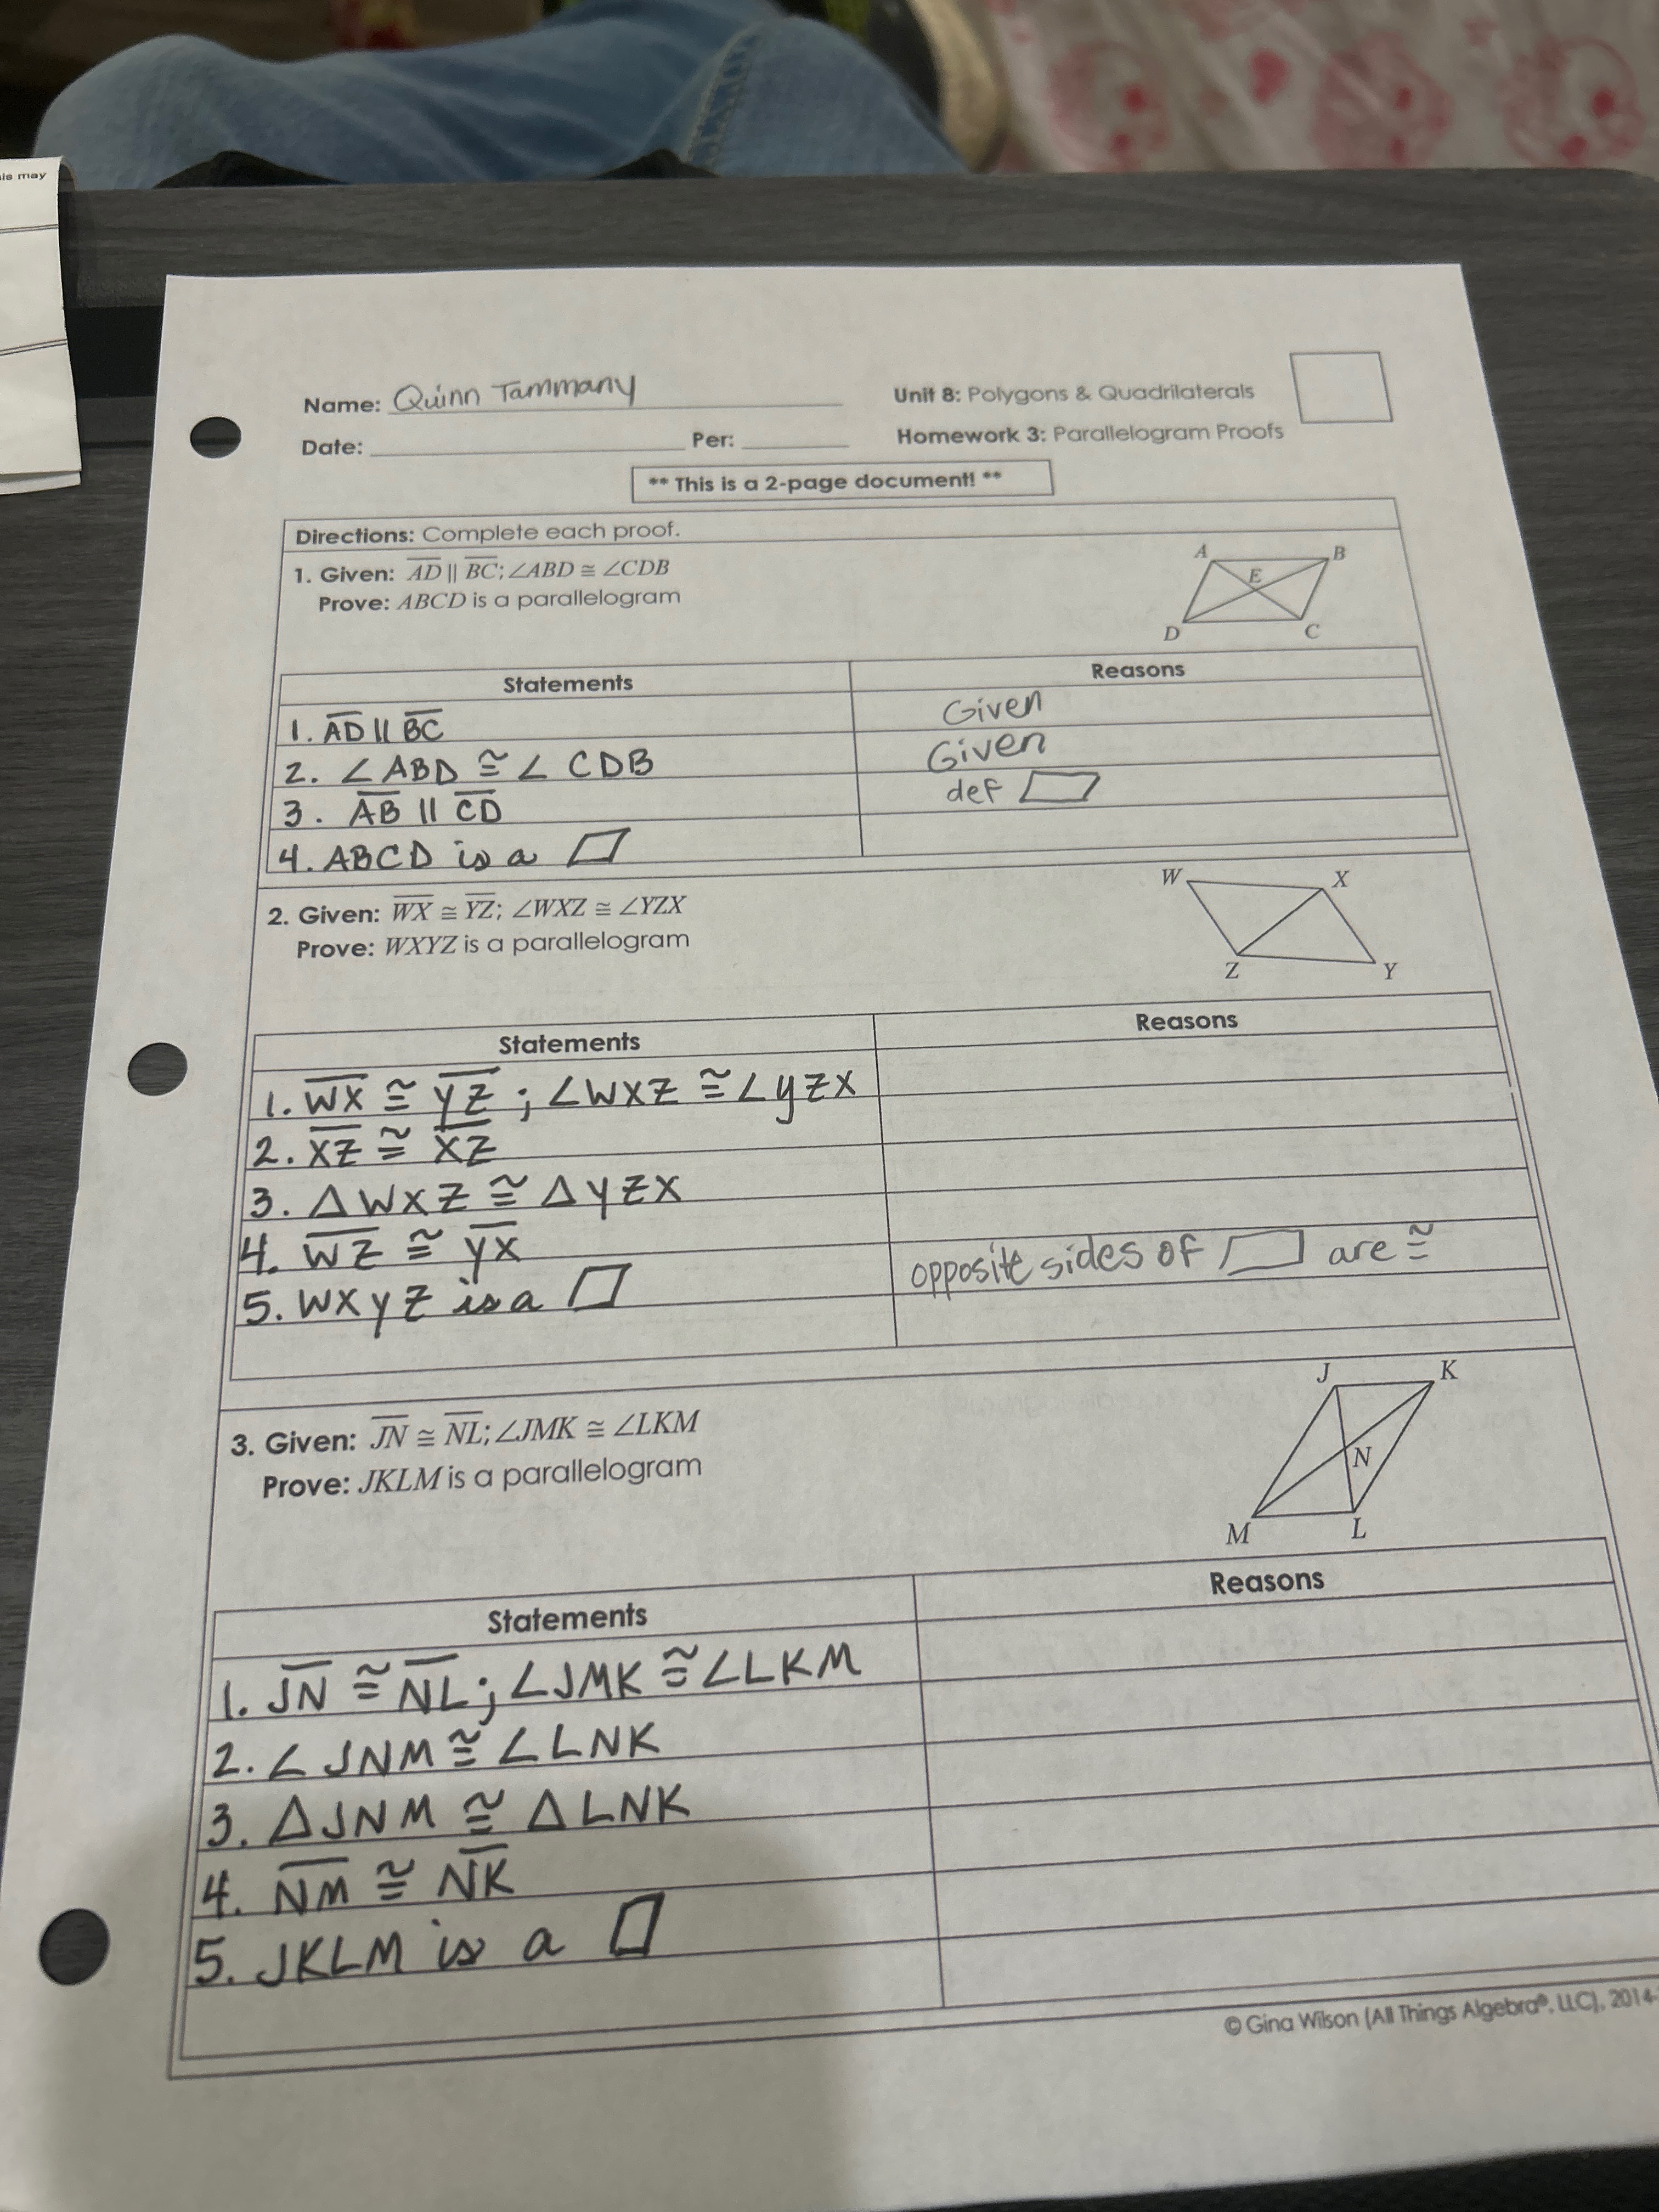 his may
Name: Quinn Tammany
Unit 8: Polygons & Quadrilaterals
Date: Per:
Homework 3: Parallelogram Proofs
** This is a 2-page document! **
Directions: Complete each proof.
1. Given: AD || BC; ∠ABD ≅ ∠CDB
Prove: ABCD is a parallelogram
A B
E
D C
Statements Reasons
1. AD || BC Given
2. ∠ABD ≅ ∠CDB Given
3. AB || CD def ▱
4. ABCD is a ▱
2. Given: WX ≅ YZ; ∠WXZ ≅ ∠YZX
Prove: WXYZ is a parallelogram
W X
Z Y
Statements Reasons
1. WX ≅ YZ; ∠WXZ ≅ ∠YZX
2. XZ ≅ XZ
3. △WXZ ≅ △YZX
4. WZ ≅ YX
5. WXYZ is a ▱ opposite sides of ▱ are ≅
3. Given: JN ≅ NL; ∠JMK ≅ ∠LKM
Prove: JKLM is a parallelogram
J K
N
M L
Statements Reasons
1. JN ≅ NL; ∠JMK ≅ ∠LKM
2. ∠JNM ≅ ∠LNK
3. △JNM ≅ △LNK
4. NM ≅ NK
5. JKLM is a ▱
© Gina Wilson (All Things Algebra®, LLC), 2014-